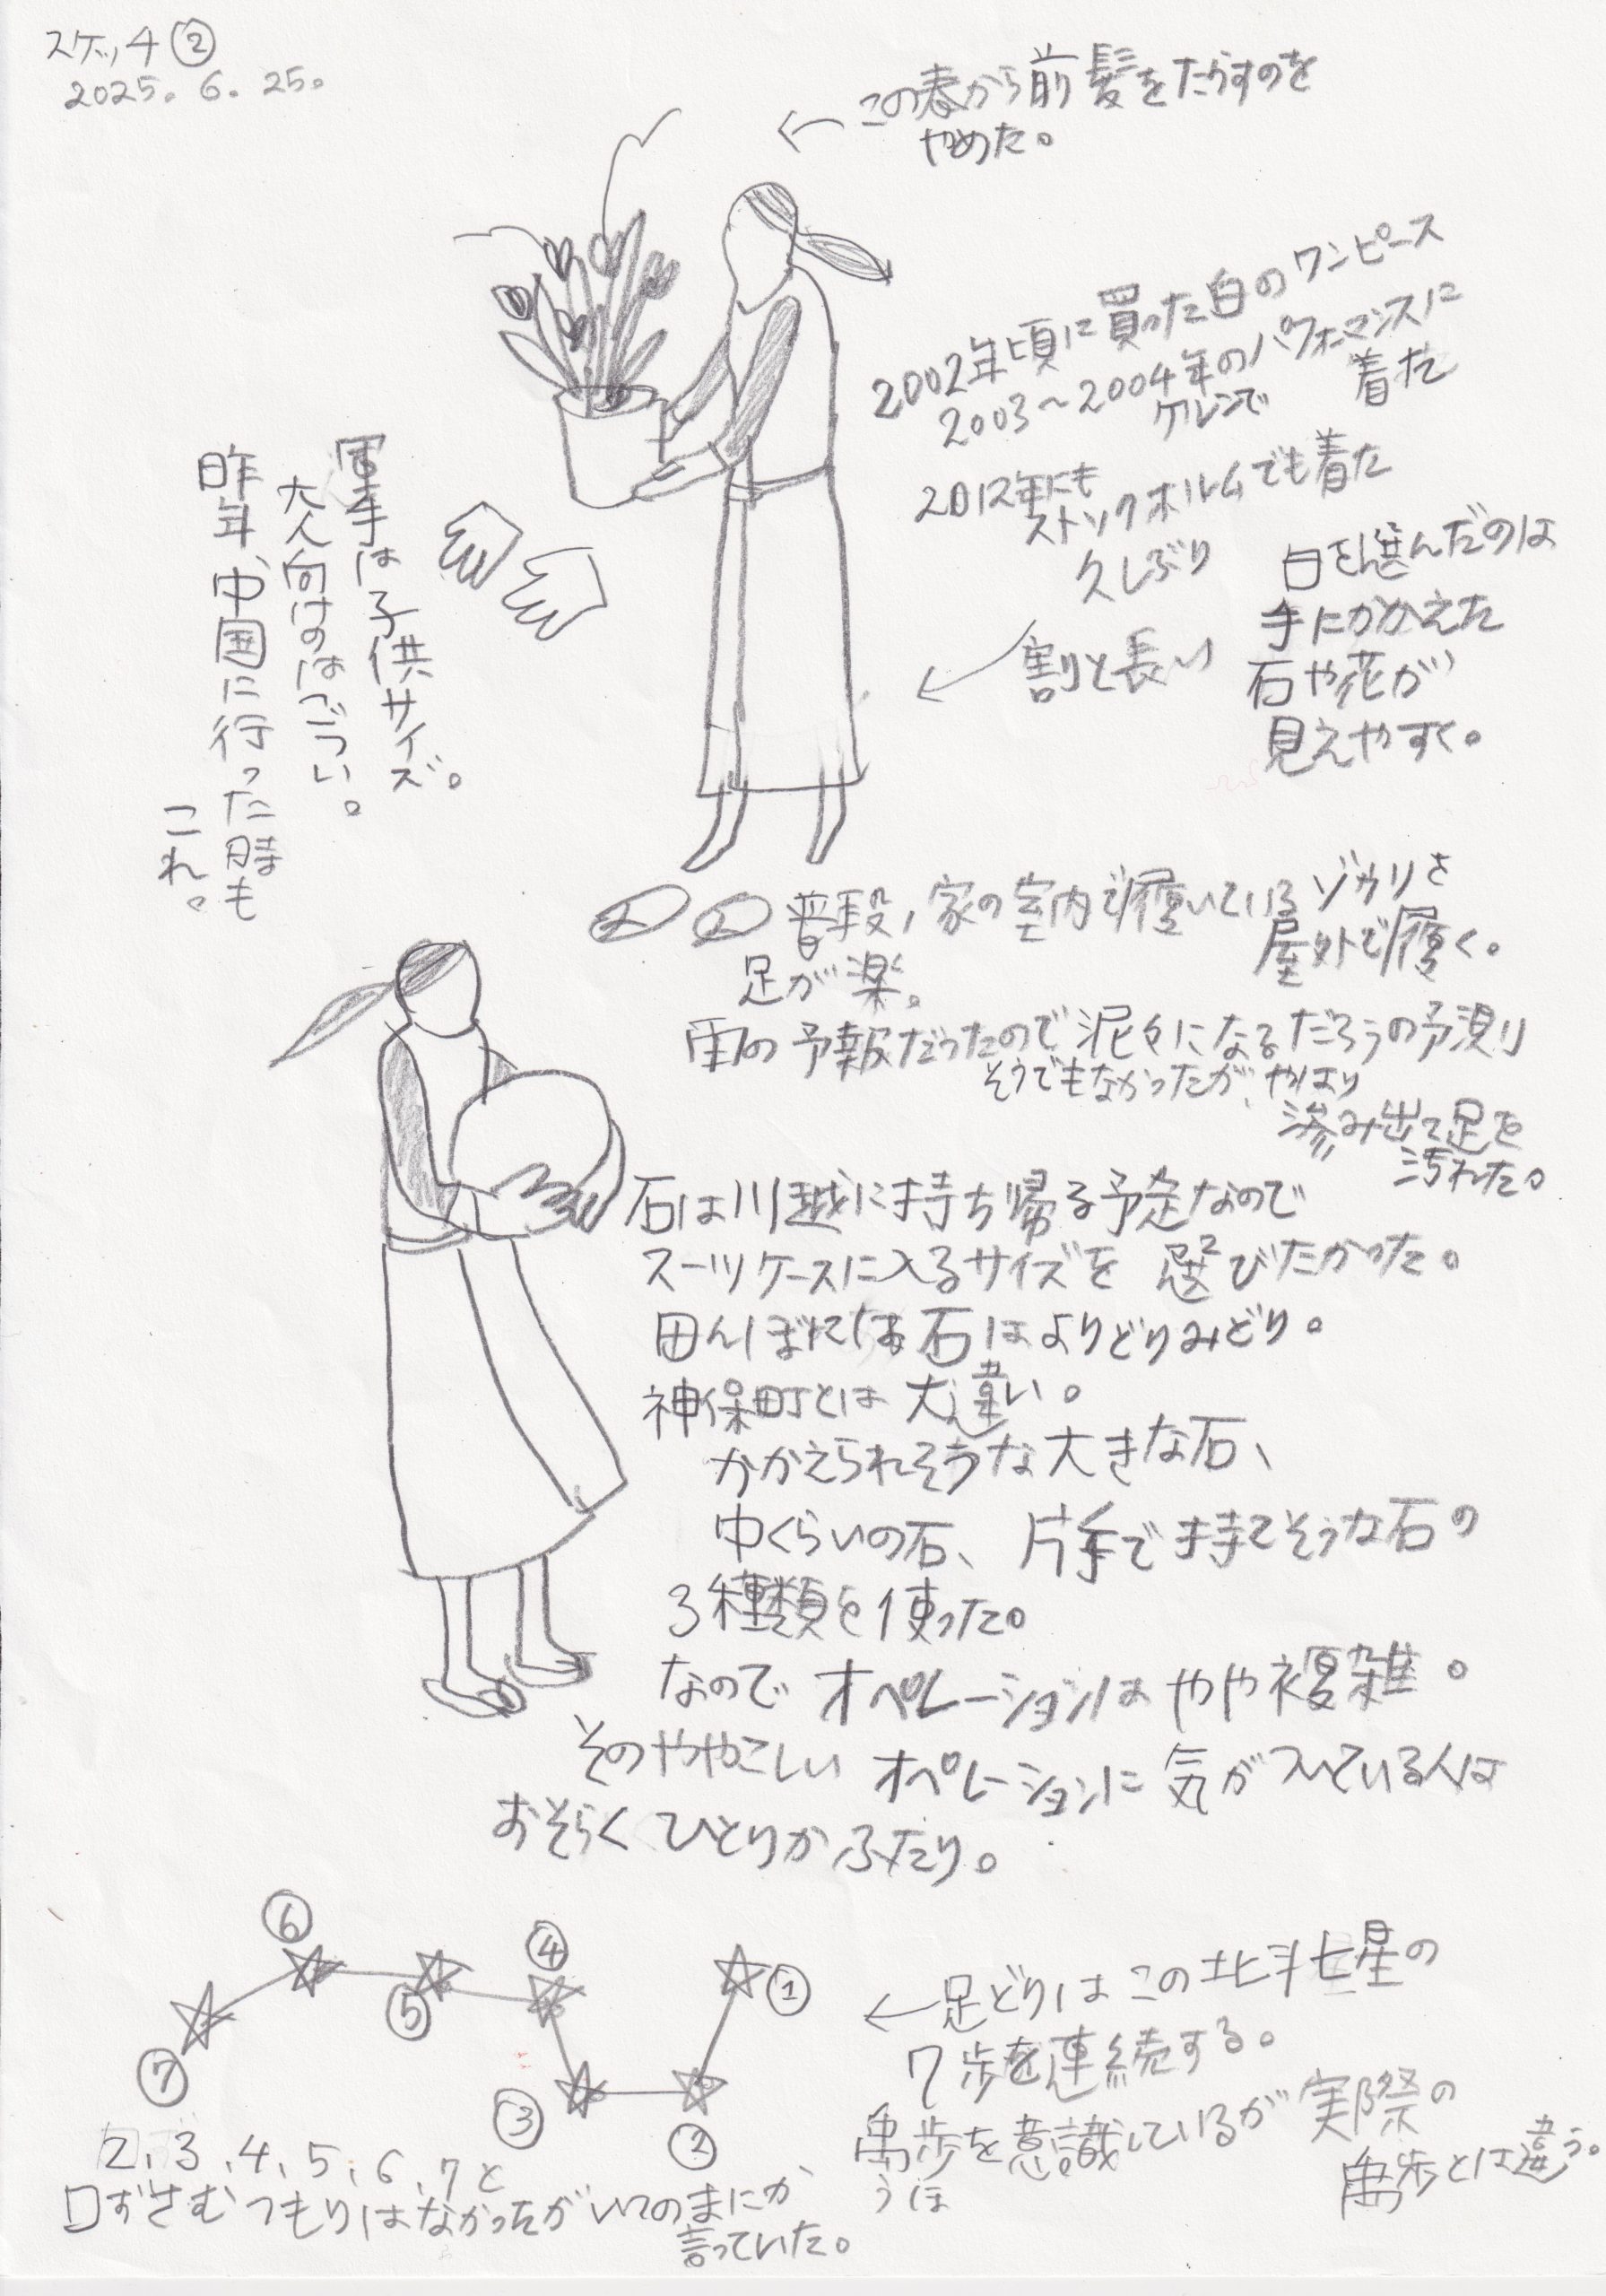 スケッチ②
2025. 6. 25.
この春から前髪をたらすのを
やめた。
2002年頃に買った白のワンピース
2003〜2004年のパフォーマンスに
ケルンで
着た
2012年にも
ストックホルムでも着た
久しぶり
白を選んだのは
手にかかえた
石や花が
見えやすく。
割と長い
軍手は子供サイズ。
大人向けのはごつい。
昨年、中国に行った時も
これ。
普段、家の室内で履いているゾウリを
屋外で履く。
足が楽。
雨の予報だったので泥々になるだろうの予測
そうでもなかったが、やはり
滲み出て足を
汚れた。
石は川越に持ち帰る予定なので
スーツケースに入るサイズを選びたかった。
田んぼには石はよりどりみどり。
神保町とは大違い。
かかえられそうな大きな石、
中くらいの石、片手で持てそうな石の
3種類を使った。
なのでオペレーションはやや複雑。
そのややこしいオペレーションに気がついている人は
おそらくひとりかふたり。
⑥
④
①
⑤
⑦
③
②
←足どりはこの北斗七星の
7歩を連続する。
禹歩を意識しているが実際の
うほ
禹歩とは違う。
2、3、4、5、6、7と
口ずさむつもりはなかったがいつのまにか
言っていた。